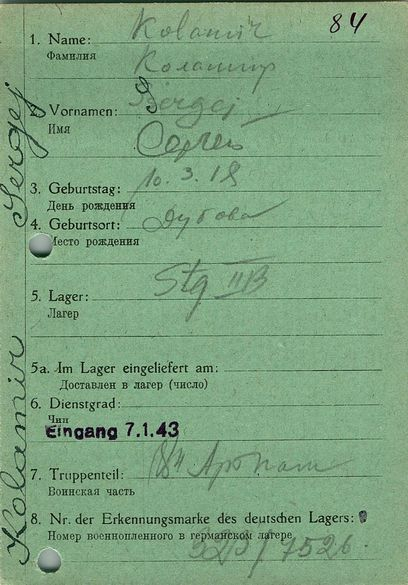 84
1. Name: Kolamir
Фамилия Коламир
2. Vornamen: Sergej
Имя Сергей
3. Geburtstag: 10.3.18
День рождения
4. Geburtsort: Дубова
Место рождения
5. Lager: Stg IIB
Лагер
5a. Im Lager eingeliefert am:
Доставлен в лагер (число)
6. Dienstgrad:
Чин
Eingang 7.1.43
7. Truppenteil:
Воинская часть
8. Nr. der Erkennungsmarke des deutschen Lagers:
Номер военнопленного в германском лагере
7526
Kolamir Sergej